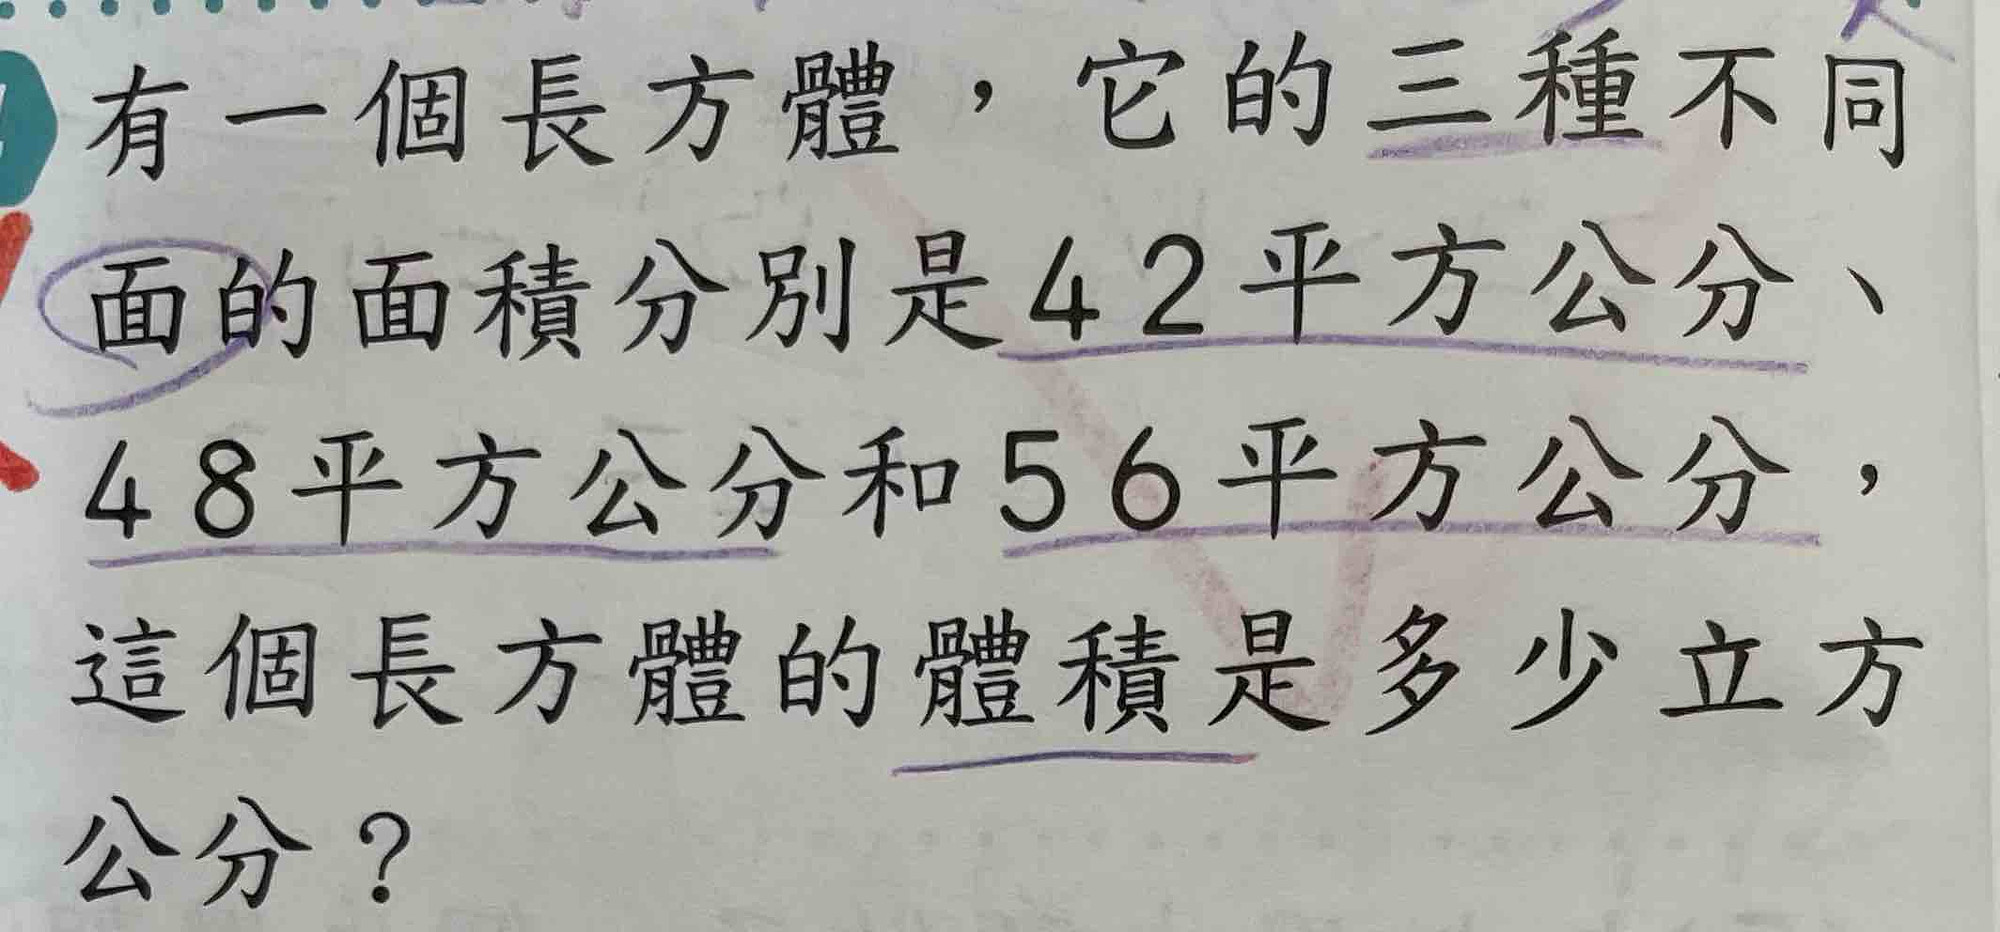 有一個長方體，它的三種不同
面的面積分別是42平方公分、
48平方公分和56平方公分，
這個長方體的體積是多少立方
公分？